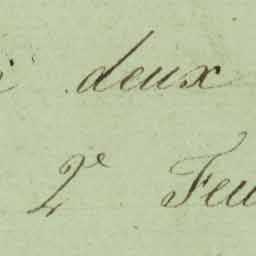 deux
2e Feu